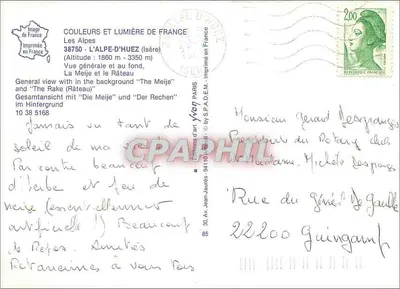 Image
de France
Imprimée
en France
COULEURS ET LUMIÈRE DE FRANCE
Les Alpes
38750 - L'ALPE-D'HUEZ (Isère)
(Altitude : 1860 m - 3350 m)
Vue générale et au fond,
La Meije et le Râteau
General view with in the background "The Meije"
and "The Rake (Râteau)"
Gesamtansicht mit "Die Meije" und "Der Rechen"
im Hintergrund
10 38 5168
Jamais vu tant de
soleil de ma
Par contre beaucoup
d'herbe et peu de
neige (essentiellement
artificielle !) Beaucoup
de Repos. Amitiés
à vous Tous
Editions d'art Yvon PARIS
30, Av. Jean-Jaurès - 94110
© by S.P.A.D.E.M. - Imprimé en France
85
CPARAMA
2,00
RÉPUBLIQUE FRANÇAISE
Monsieur Gérard Desgranges
du Rotary Club
Madame Michèle Desgranges
Rue du Général de Gaulle
22200 Guingamp